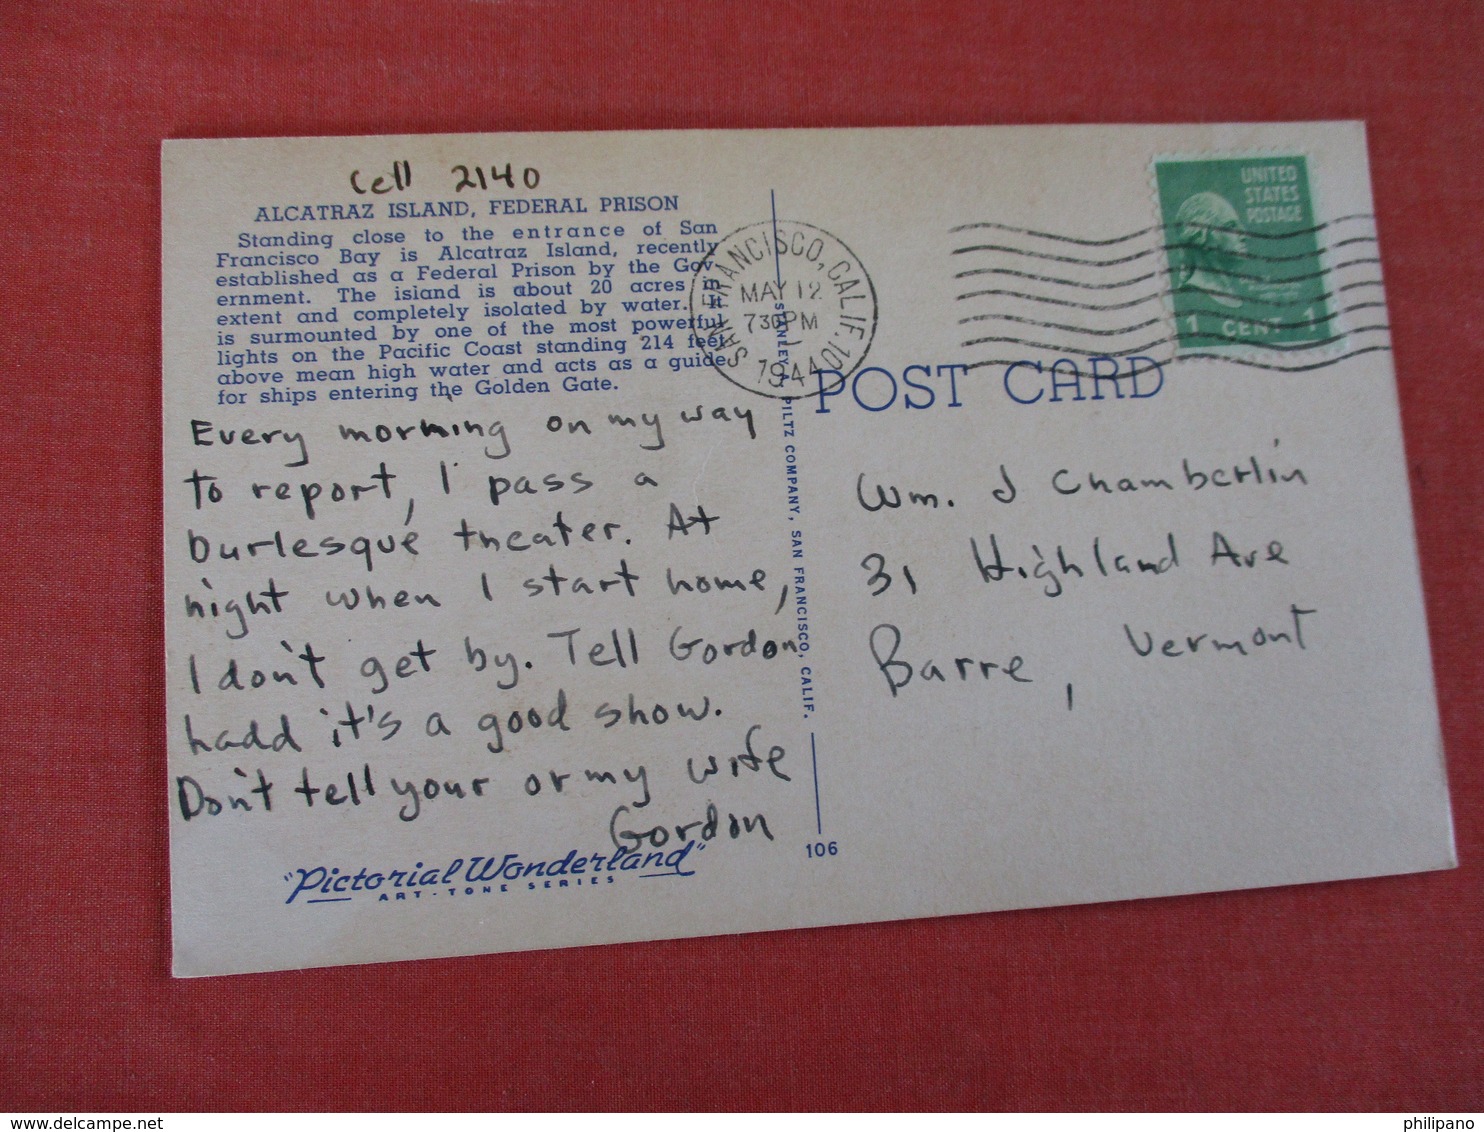 Cell 2140
ALCATRAZ ISLAND, FEDERAL PRISON
Standing close to the entrance of San
Francisco Bay is Alcatraz Island, recently
established as a Federal Prison by the Gov-
ernment. The island is about 20 acres in
extent and completely isolated by water. It
is surmounted by one of the most powerful
lights on the Pacific Coast standing 214 feet
above mean high water and acts as a guide
for ships entering the Golden Gate.
Every morning on my way
to report, I pass a
burlesque theater. At
night when I start home,
I don't get by. Tell Gordon
hadd it's a good show.
Don't tell your or my wife
Gordon
"Pictorial Wonderland"
ART-TONE SERIES
SAN FRANCISCO, CALIF. 101
MAY 12
730PM
1944
STANLEY A. PILTZ COMPANY, SAN FRANCISCO, CALIF.
106
UNITED
STATES
POSTAGE
1 CENT 1
POST CARD
Wm. J Chamberlin
31 Highland Ave
Barre, Vermont
philipano